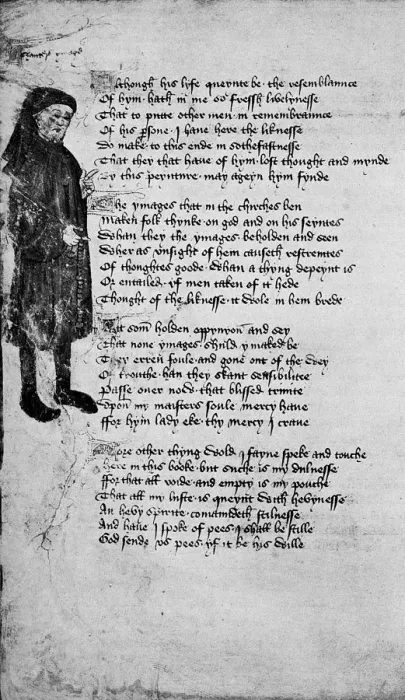 Although his lyfe queynte be the resemblaunce
Of hym hath in me so fressh livelynesse
That to putte other men in remembraunce
Of his persone I have here the liknesse
Do make to this ende in sothefastnesse
That they that have of hym lost thought and mynde
By this peynture may ageyn hym fynde
The ymages that in the chirches ben
Maken folk thynke on god and on his seyntes
Whan they the ymages beholden and seen
Wher as unsight of hem causeth restreintes
Of thoughtes goode Whan a thyng depeynt is
Or entailed yf men taken of it hede
Thought of the liknesse it wole in hem brede
Yit som holden oppynyon and sey
That none ymages shuld y maked be
They erren foule and gone out of the wey
Of trouthe han they skant sensibilitee
Passe over now that blissed trinite
Upon my maisters soule mercy have
ffor hym lady eke thy mercy I crave
More other thyng wold I fayne speke and touche
Here in this booke but suche is my dulnesse
ffor that all voide and empty is my pouche
That all my luste is queynt with hevynesse
An hevy spirite comaundeth stilnesse
And have I spoke of pees I shall be stille
God sende us pees yf it be his wille